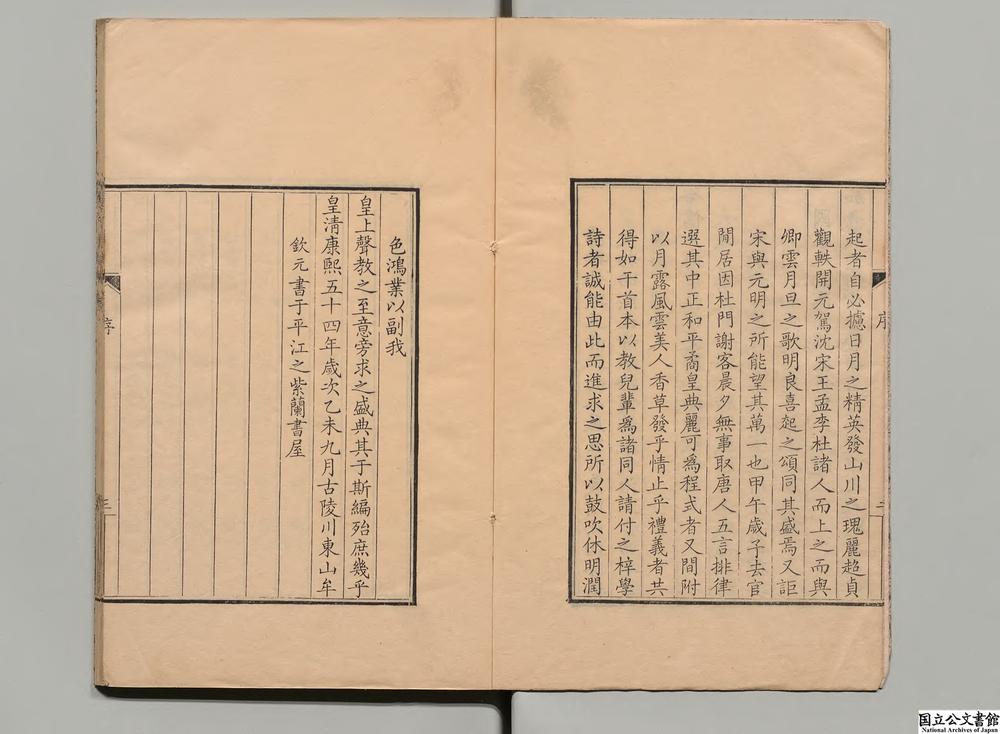 起者自必攄日月之精英發山川之瑰麗超貞
觀軼開元駕沈宋王孟李杜諸人而上之而與
卿雲月旦之歌明良喜起之頌同其盛焉又詎
宋與元明之所能望其萬一也甲午歲予去官
閒居因杜門謝客晨夕無事取唐人五言排律
選其中正和平矞皇典麗可為程式者又間附
以月露風雲美人香草發乎情止乎禮義者共
得如干首本以教兒輩為諸同人請付之梓學
詩者誠能由此而進求之思所以鼓吹休明潤
序
三
色鴻業以副我
皇上聲教之至意旁求之盛典其于斯編殆庶幾乎
皇清康熙五十四年歲次乙未九月古陵川東山牟
欽元書于平江之紫蘭書屋
序
三
国立公文書館
National Archives of Japan